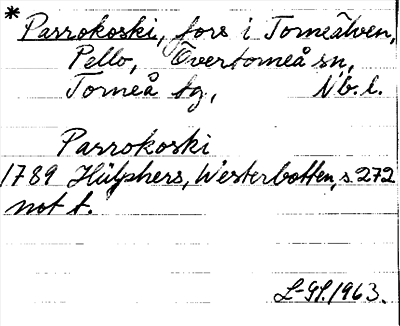 * Parrokoski, fors i Torneälven,
Pello, Övertorneå sn,
Torneå tg, Nb. l.
Parrokoski
1789 Hülphers, Westerbotten, s. 272
not t.
L-Gl. 1963.